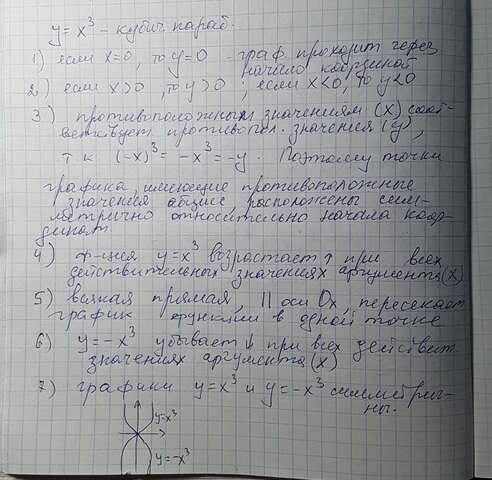 y=x³ - кубич. парад.
1) если x=0, то y=0 - граф. проходит через
начало координат
2) если x>0, то y>0 ; если x<0, то y<0
3) противоположным значениям (x) соот-
ветствует противопол. значения (y),
т к. (-x)³ = -x³ = -y. Поэтому точки
графика, имеющие противоположные
значения абцисс, расположены сим-
метрично относительно начала коор-
динат
4) ф-ция y=x³ возрастает↑ при всех
действительных значениях аргумента (x)
5) всякая прямая, || оси Ox, пересекает
график функции в одной точке
6) y=-x³ убывает↓ при всех действит.
значениях аргумента (x)
7) графики y=x³ и y=-x³ симметрич-
ны.
y=x³
y=-x³